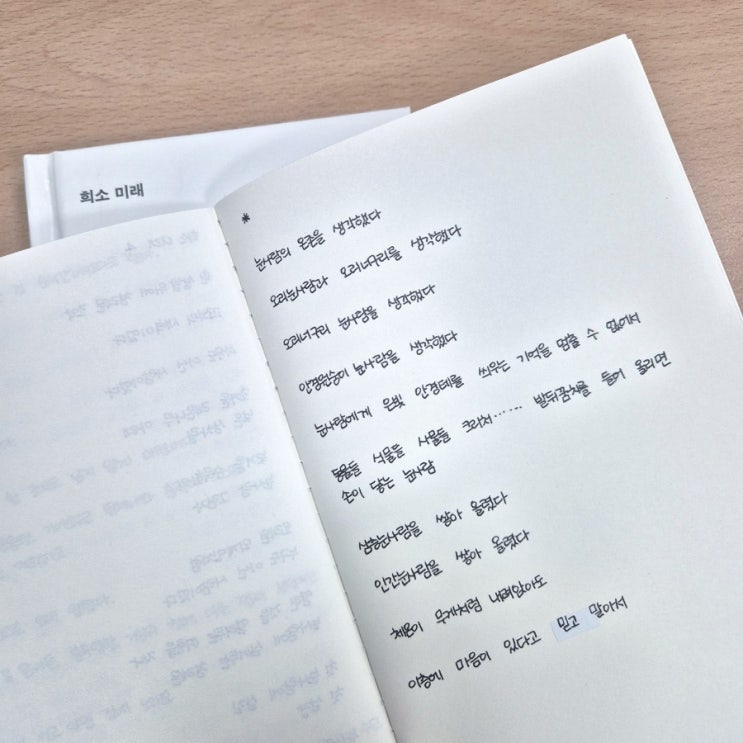 희소 미래
*
눈사람의 온준을 생각했다
오리눈사람과 오리너구리를 생각했다
오리너구리 눈사람을 생각했다
안경원숭이 눈사람을 생각했다
눈사람에게 은빛 안경테를 씌우는 기억을 멈출 수 없어서
동물들 식물들 사물들 크라처…… 발뒤꿈치를 들어 올리면
손이 닿는 눈사람
삼층눈사람을 쌓아 올렸다
인간눈사람을 쌓아 올렸다
체온이 무게처럼 내려앉아도
이층에 마음이 있다고 믿고 말아서